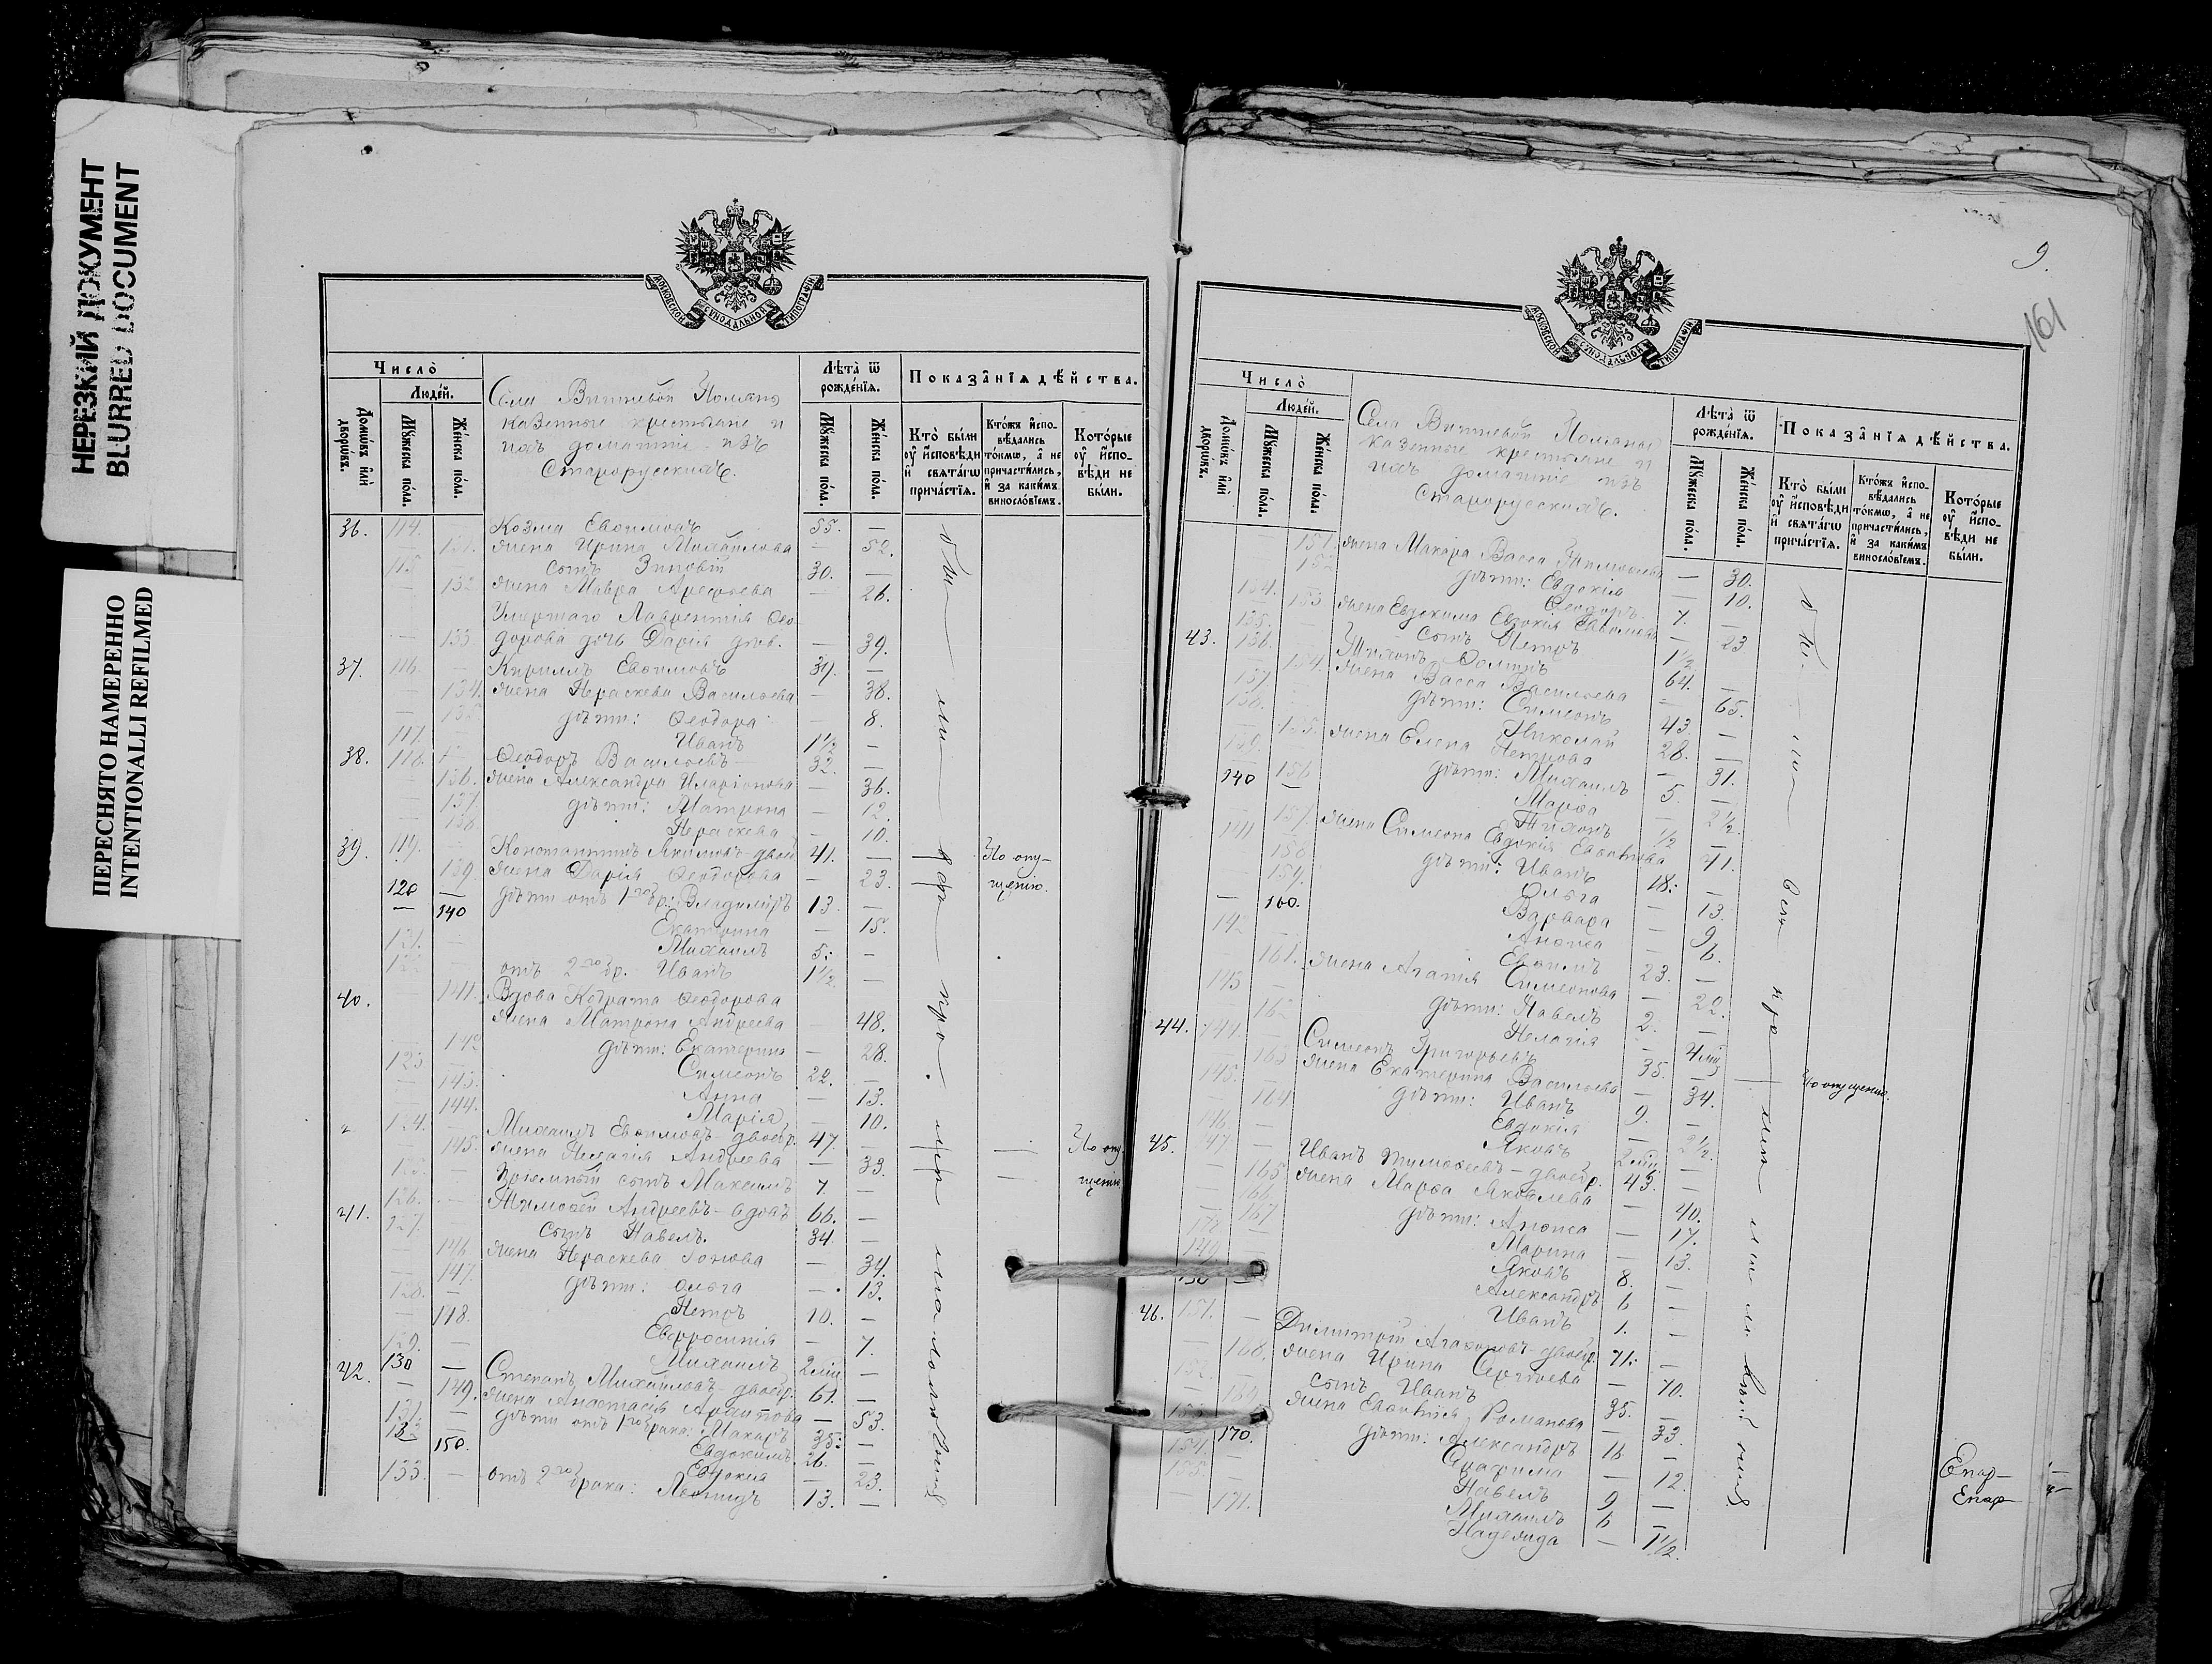 НЕРЕЗКИЙ ДОКУМЕНТ
BLURRED DOCUMENT
ПЕРЕСНЯТО НАМЕРЕННО
INTENTIONALLI REFILMED
МОСКОВСКОЙ СѴНОДАЛЬНОЙ ТИПОГРАФІИ
Число̀
Людéй.
Домѡ́въ и҆лѝ дворѡ́въ.
Мꙋ́жеска по́ла.
Же́нска по́ла.
Села Вишневой Поляны
казенные крестьяне и
ихъ домашніе изъ
Старорусскихъ.
Лѣ́та ѿ рожде́нїѧ.
Мꙋ́жеска по́ла.
Же́нска по́ла.
Показа̂нїѧ дѣ́йства.
Кто̀ бы́ли оу҆ и҆сповѣ́ди и҆ свѧта́гѡ прича́стїѧ.
Кто́жъ и҆спо-вѣ́дались то́кмѡ, а҆ не причасти́лись, и҆ за каки́мъ винослóвїемъ.
Кото́рые оу҆ и҆спо-вѣ́ди не бы́ли.
36. 114. Козма Евѳимовъ 55. —
131. жена Ирина Михайлова — 52.
115 — сынъ Зиновій 30. —
— 132. жена Мавра Арефьева — 26.
Умершаго Лаврентія Ѳео-
— 133. дорова дочь Дарія дѣв. — 39.
37. 116. — Кириллъ Евѳимовъ 39. —
— 134. жена Параскева Васильева — 38.
— 135 дѣти: Ѳеодора — 8.
117. — Иванъ 1½ —
38. 118. — Ѳеодоръ Васильевъ 32. —
— 136. жена Александра Иларіонова — 36.
— 137. дѣти: Матрона — 12.
— 138. Параскева — 10.
39. 119. — Константинъ Якимовъ двоеб. 41. — По опу-
— 139 жена Дарія Ѳеодорова — 23. щенію.
120 — дѣти отъ 1го бр.: Владиміръ 13. —
— 140 Екатерина — 15.
121. — Михаилъ 5. —
122 — отъ 2го бр. Иванъ 1½ —
40. 141. Вдова Кодрата Ѳеодорова
жена Матрона Андреева — 48.
— 142 дѣти: Екатерина — 28.
123 — Симеонъ 22. —
— 143. Анна — 13.
— 144. Марія — 10.
124. — Михаилъ Евѳимовъ двоебр. 47. — По опу
— 145. жена Пелагія Андреева — 33. щенію
125. — пріемный сынъ Максимъ 7. —
41. 126. — Тимоѳей Андреевъ вдовъ 66. —
127. — сынъ Павелъ. 34 —
— 146 жена Параскева Іонова — 34.
— 147. дѣти: Ольга — 13.
128. — Петръ 10. —
— 148. Евфросинія — 7.
129. — Михаилъ 2 мѣс. —
42. 130 — Степанъ Михайловъ двоебр. 61. —
— 149. жена Анастасія Архипова — 53.
131 — дѣти отъ 1го брака: Макаръ 35. —
132 — Евдокимъ 26. —
150. Евдокія — 23.
133. — отъ 2го брака: Леонидъ 13. —
9.
161
МОСКОВСКОЙ СѴНОДАЛЬНОЙ ТИПОГРАФІИ
Число̀
Людéй.
Домѡ́въ и҆лѝ дворѡ́въ.
Мꙋ́жеска по́ла.
Же́нска по́ла.
Села Вишневой Поляны
казенные крестьяне и
ихъ домашніе изъ
Старорусскихъ.
Лѣ́та ѿ рожде́нїѧ.
Мꙋ́жеска по́ла.
Же́нска по́ла.
Показа̂нїѧ дѣ́йства.
Кто̀ бы́ли оу҆ и҆сповѣ́ди и҆ свѧта́гѡ прича́стїѧ.
Кто́жъ и҆спо-вѣ́дались то́кмѡ, а҆ не причасти́лись, и҆ за каки́мъ винослóвїемъ.
Кото́рые оу҆ и҆спо-вѣ́ди не бы́ли.
— 151. жена Макара Васса Тимоѳеева — 30.
152 дѣти: Евдокія — 10.
134. — Ѳеодоръ. 7. —
153 жена Евдокима Евдокія Евѳимова — 23
135. — сынъ Петръ 1½ —
43. 136. Тихонъ Ѳоминъ 64. —
154. жена Васса Васильева — 65.
137 дѣти: Симеонъ 43. —
138. Николай 28. —
155. жена Елена Петрова — 31.
139. дѣти: Михаилъ 5. —
156 Марѳа — 2½.
140 — Тихонъ ½ —
— 157. жена Симеона Евдокія — 41.
141 — дѣти: Иванъ 18. —
158 Ольга — 13.
159. Варвара — 9
— 160. Анѳиса — 6.
142 — Евѳимъ 23. —
161. жена Агапія Симеонова — 22.
143 — дѣти: Павелъ 2. —
162 Пелагія — 4 мѣс
44. 144. Симеонъ Григорьевъ 35. — По опущенію.
163 жена Екатерина Васильева — 34.
145. — дѣти: Иванъ 9. —
— 164 Евдокія — 2½.
146. — Яковъ 2 мѣс —
45. 147. — Иванъ Тимоѳеевъ двоебр. 43. —
— 165 жена Марѳа Яковлева — 40.
— 166. дѣти: Анѳиса — 17.
— 167 Марина — 13.
148 — Яковъ 8. —
149. — Александръ 6 —
150 — Иванъ 1. —
46. 151. — Димитрій Агаѳоновъ двоебр. 71. —
— 168. жена Ирина Сергѣева — 70.
152. — сынъ Иванъ 35. —
— 169. жена Романова — 33.
153. — дѣти: Александръ 16 —
170. Серафима — 12.
154. — Павелъ 9 —
155. — Михаилъ 6 —
— 171. Надежда — 1½.